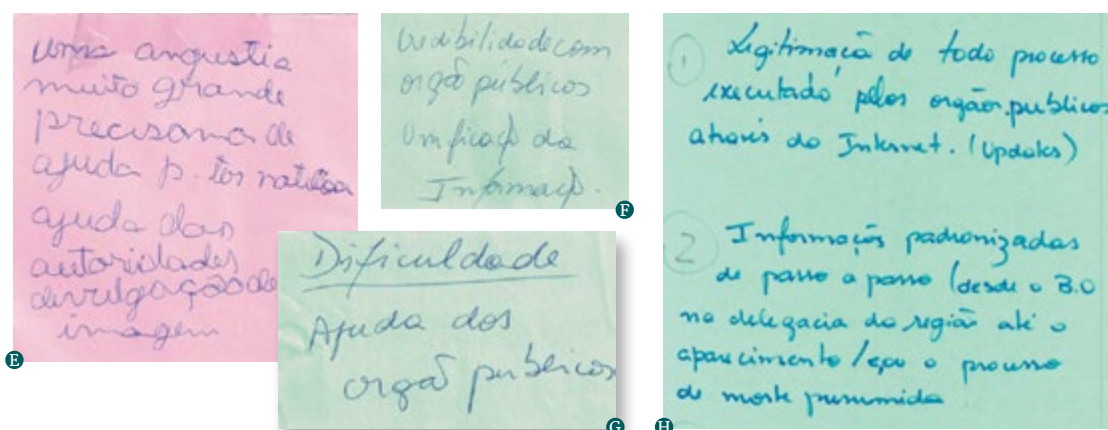 uma angustia
muito grande
precisamos de
ajuda p. ter
ajuda das
autoridades
divulgação de
imagem
E
credibilidade com
orgão públicos
unificação da
Informação.
F
Dificuldade
Ajuda dos
orgão publicos
G
1 Legitimação de todo processo
executado pelos orgãos publicos
através da Internet. (Updates)
2 Informações padronizadas
de passo a passo (desde o B.O
na delegacia da região até o
aparecimento / o processo
de morte presumida
H